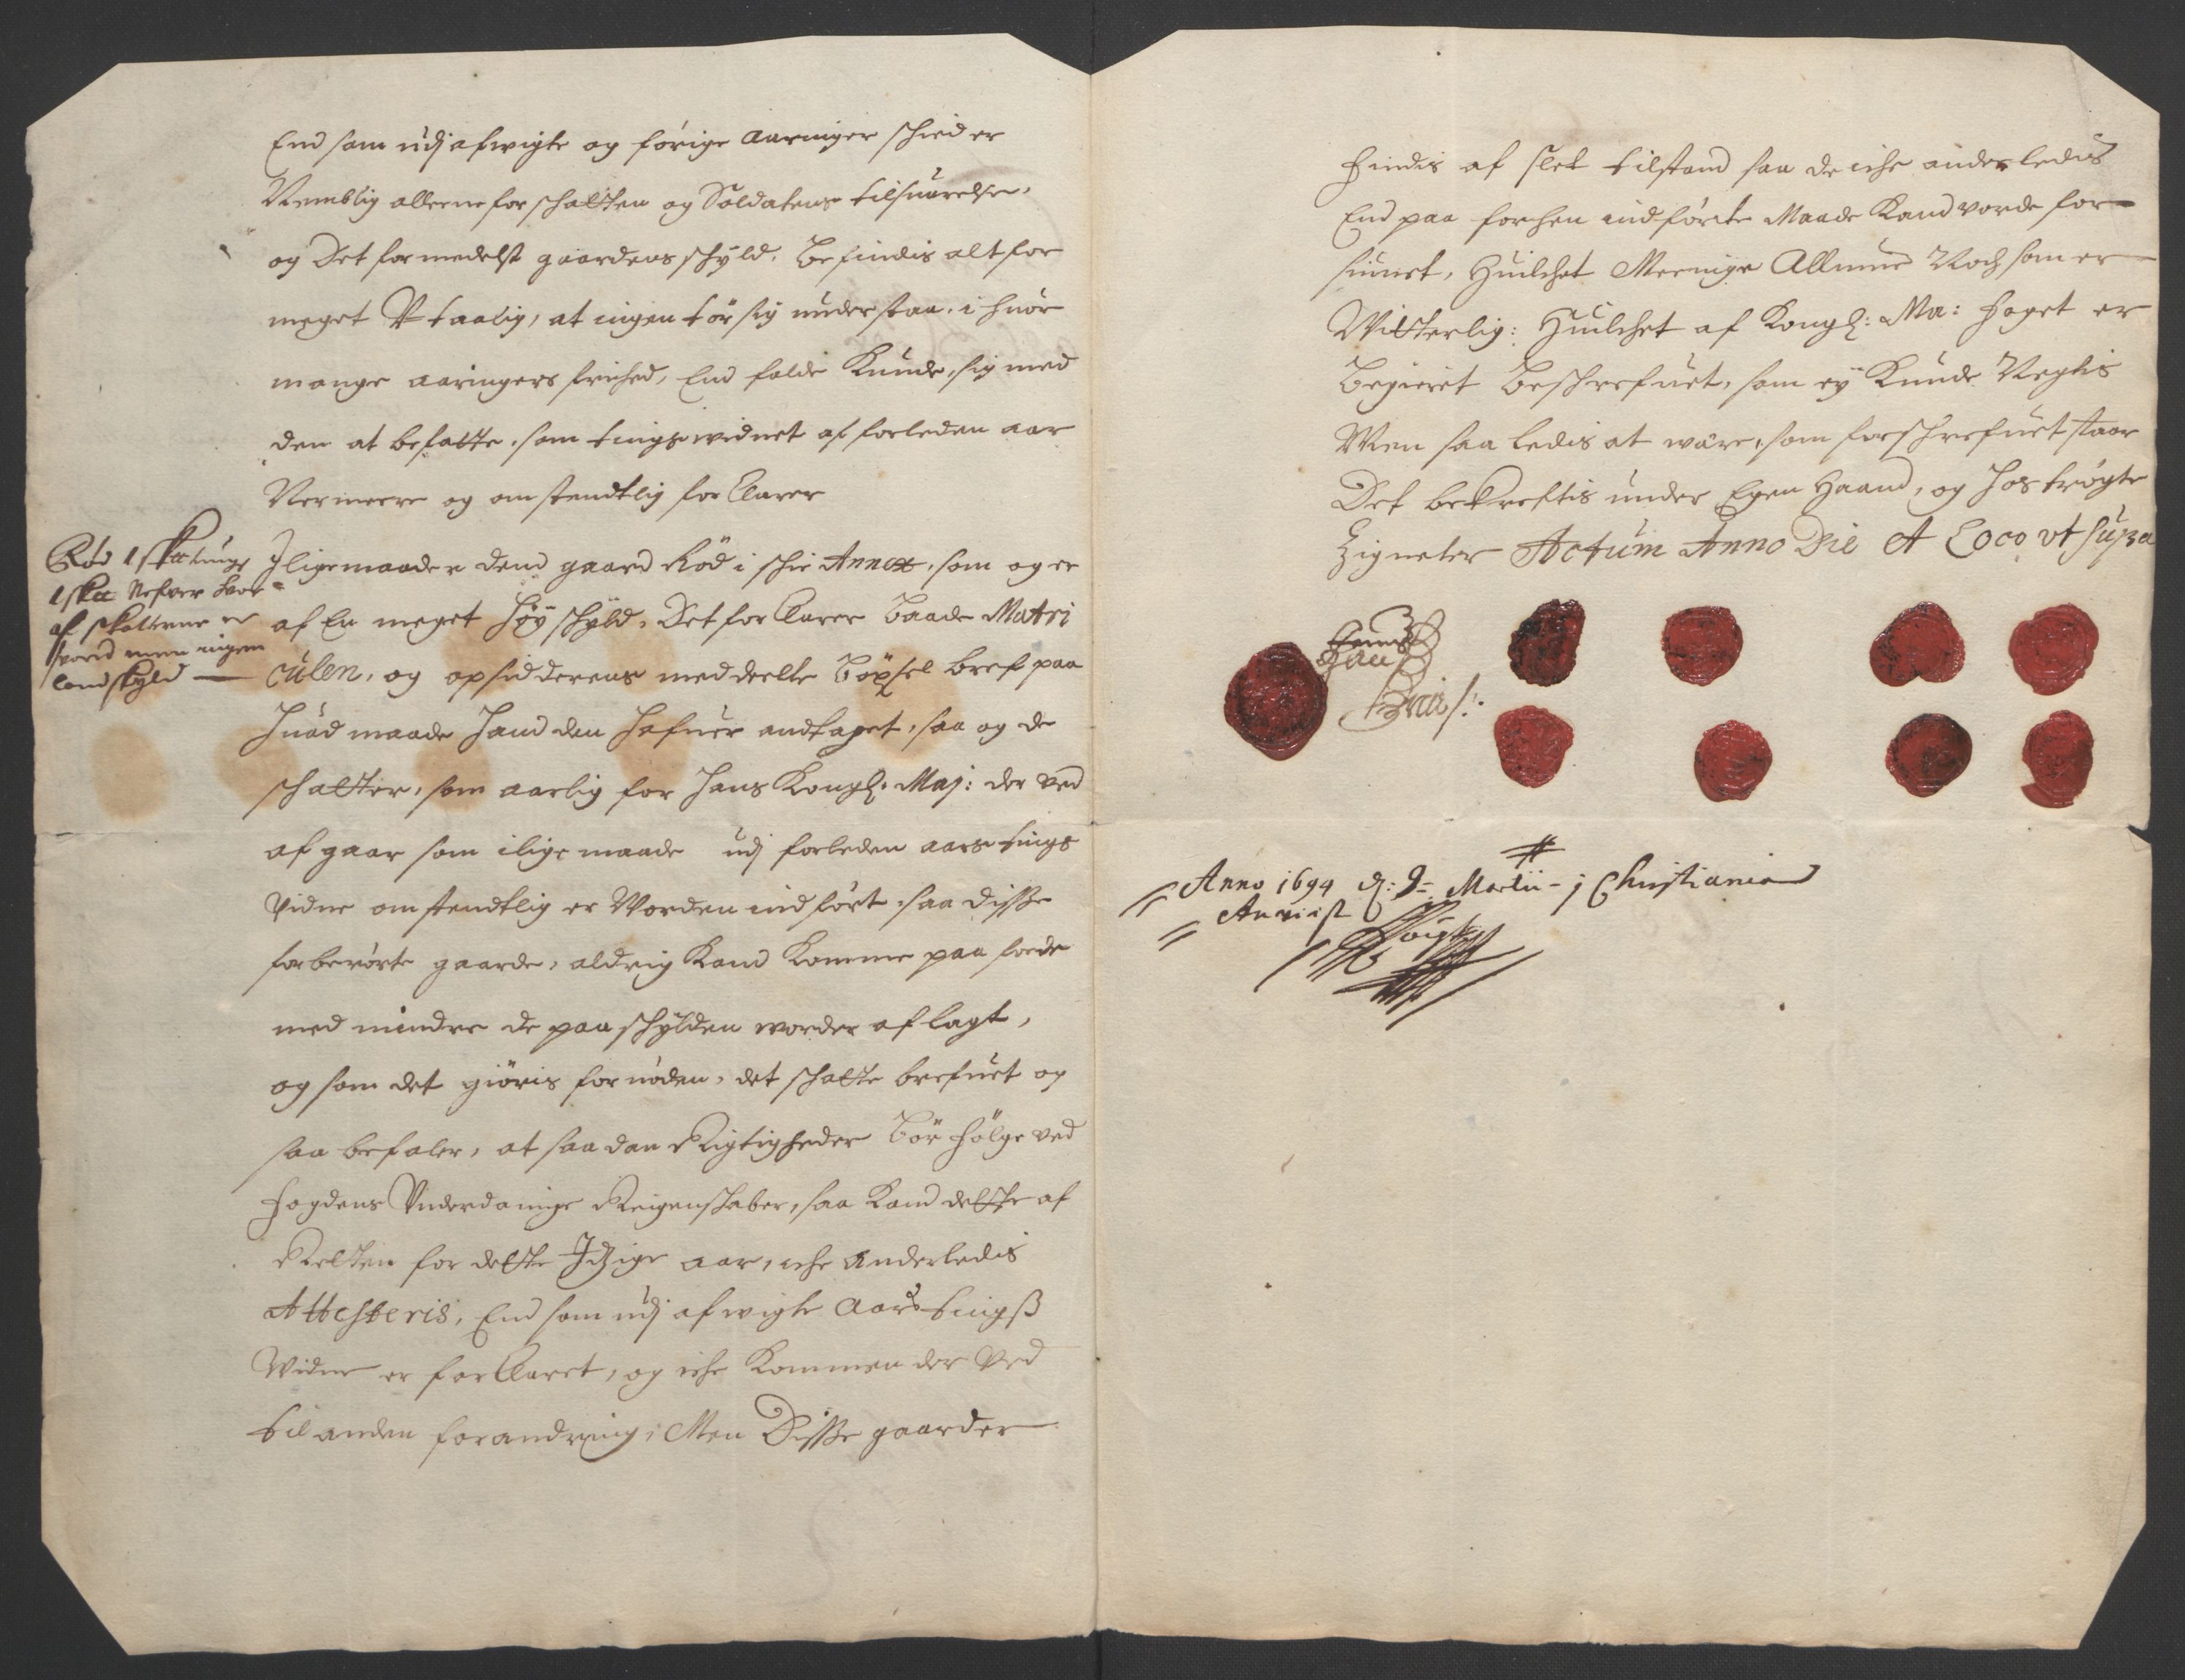 End som udj afwigte og förige aaringer schied er
Nemblig alleene for schatten og Soldatens tilsuarelse,
og Det formedelst gaardens schyld, befindis alt for
meget Utaalig, at ingen tör sig understaa, i huor
mange aaringers frihed, End falde Kunde, sig med
den at befatte, som tingswidnet af forleden aar
Nermeere og omstendtlig forklarer
Röd 1 skatlings
1 skt: Nefver hvor=
af skatterne er
svorid men ingen
landskyld
Iligemaader dend gaard Röd i schie Annex, som og er
af En meget höy schyld, Det forklarer baade Matri
culen, og opsidderens meddeelte böxsel bref paa
huad maade hand den hafuer andtaget, saa og de
schatter, som aarlig for hans Kongl: Maj: der ved
af gaar som iligemaade udj forleden aars tings
Vidne omstendtlig er Worden indfört, saa disse
forberörte gaarde, aldrig Kand Komme paa foede
med mindre de paa schylden worder aflagt,
og som det giöris fornöden, det schatte brefuet og
saa befaler, at saadan Rigtigheder bör fölge ved
fogdens Underdanige Reigenskaber, saa Kand dette af
Retten for dette Itzige aar, iche anderledis
Attesteris, End som udj afwigte Aars tingß
Widne er forklaret, og iche Kommen der Ved
til anden forandring, Men Disse gaarder
findis af slet tilstand saa de iche anderledis
End paa forhen indförte Maade Kand vorde for=
siunet, Huilchet Meenige Allmue Noch som er
Witterlig: Huilchet af Kongl: Ma: foget er
begieret beschrefuet, som ey Kunde Negtis
Men saa ledis at wäre, som forschrefuet staar
Det bekreftis under Egen Haand, og hoströgte
Zigneter Actum Anno Die Et Loco ut supra
Anno 1694 d: 9= Martii - j Christiania
Anviist